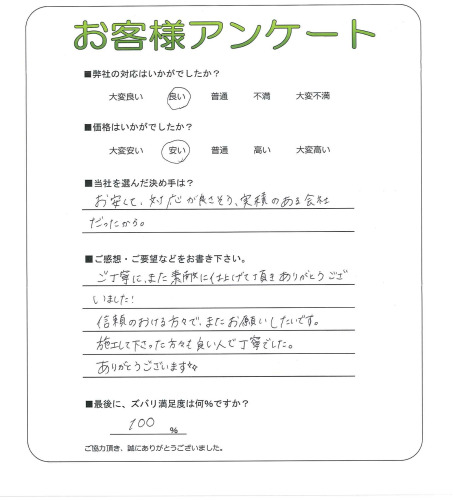 お客様アンケート
■弊社の対応はいかがでしたか？
大変良い 良い 普通 不満 大変不満
■価格はいかがでしたか？
大変安い 安い 普通 高い 大変高い
■当社を選んだ決め手は？
お安くて、対応が良さそう、実績のある会社
だったから。
■ご感想・ご要望などをお書き下さい。
ご丁寧に、また素敵に仕上げて頂きありがとうござ
いました！
信頼のおける方々で、またお願いしたいです。
施工して下さった方々も良い人で丁寧でした。
ありがとうございます
■最後に、ズバリ満足度は何%ですか？
100 %
ご協力頂き、誠にありがとうございました。